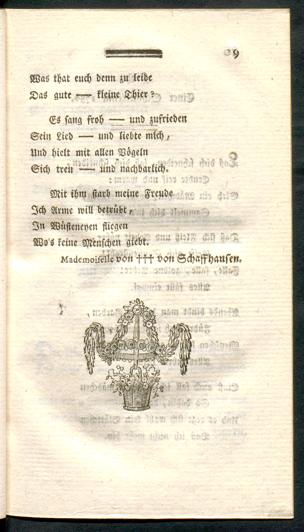 9
Was that euch denn zu leide
Das gute — kleine Thier?
Es sang froh — und zufrieden
Sein Lied — und liebte mich,
Und hielt mit allen Vögeln
Sich treu — und nachbarlich.
Mit ihm starb meine Freude
Ich Arme will betrübt,
In Wüsteneyen fliegen
Wo's keine Menschen giebt.
Mademoiselle von ††† von Schaffhausen.